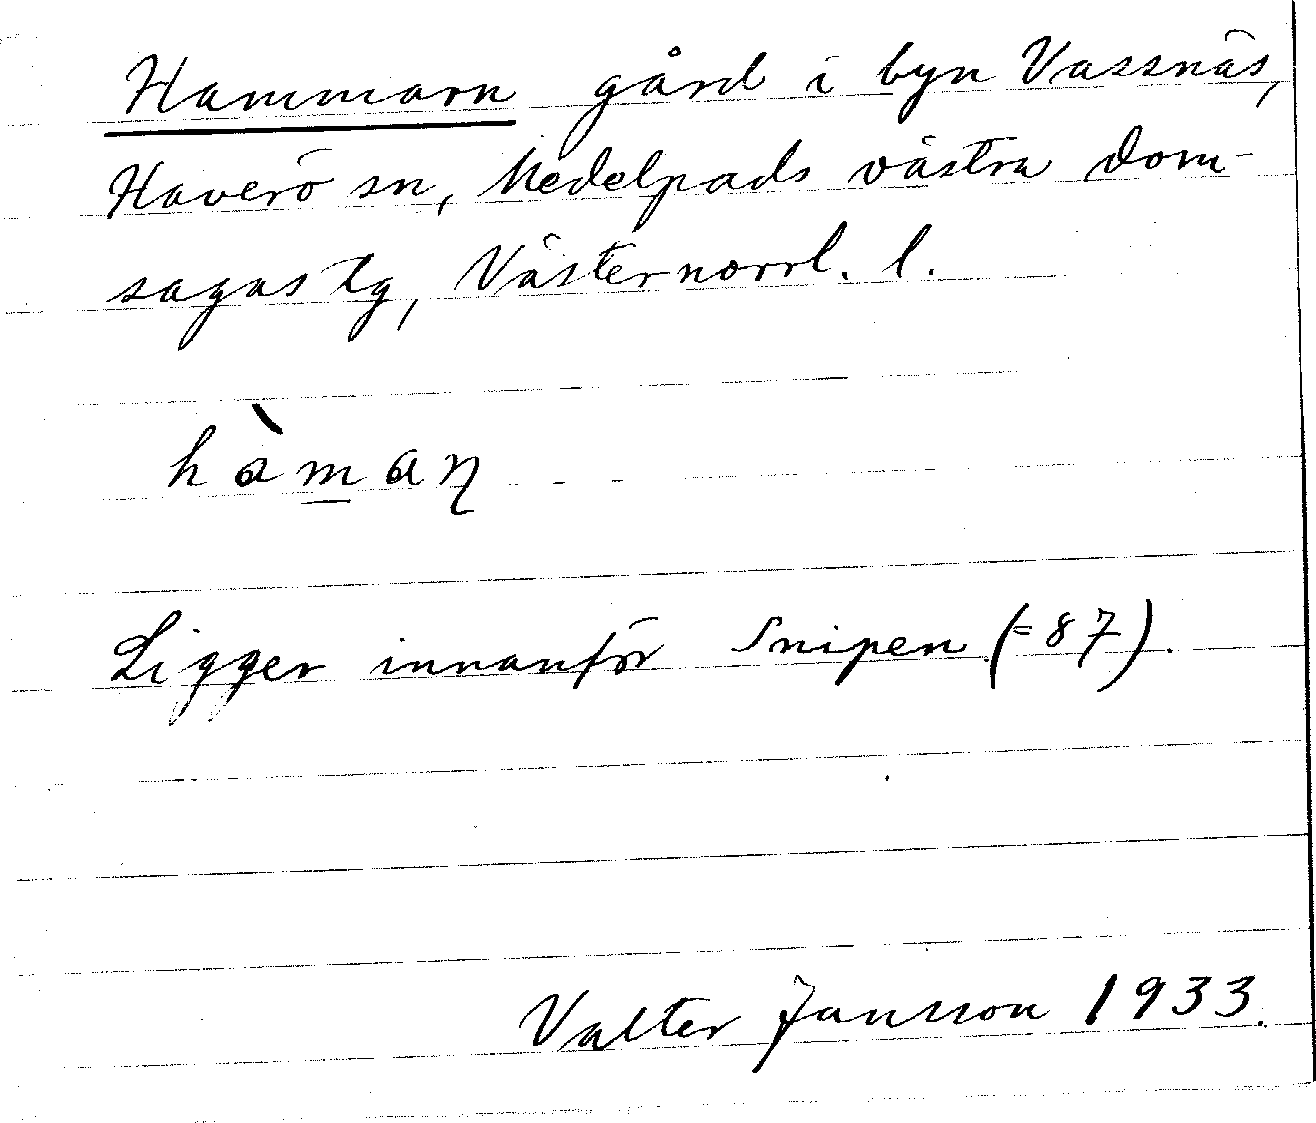 Hammarn gård i byn Vassnäs,
Haverö sn, Medelpads västra dom-
sagas tg, Västernorrl. l.
hàmaɳ
Ligger innanför Snipen (=87).
Valter Jansson 1933.